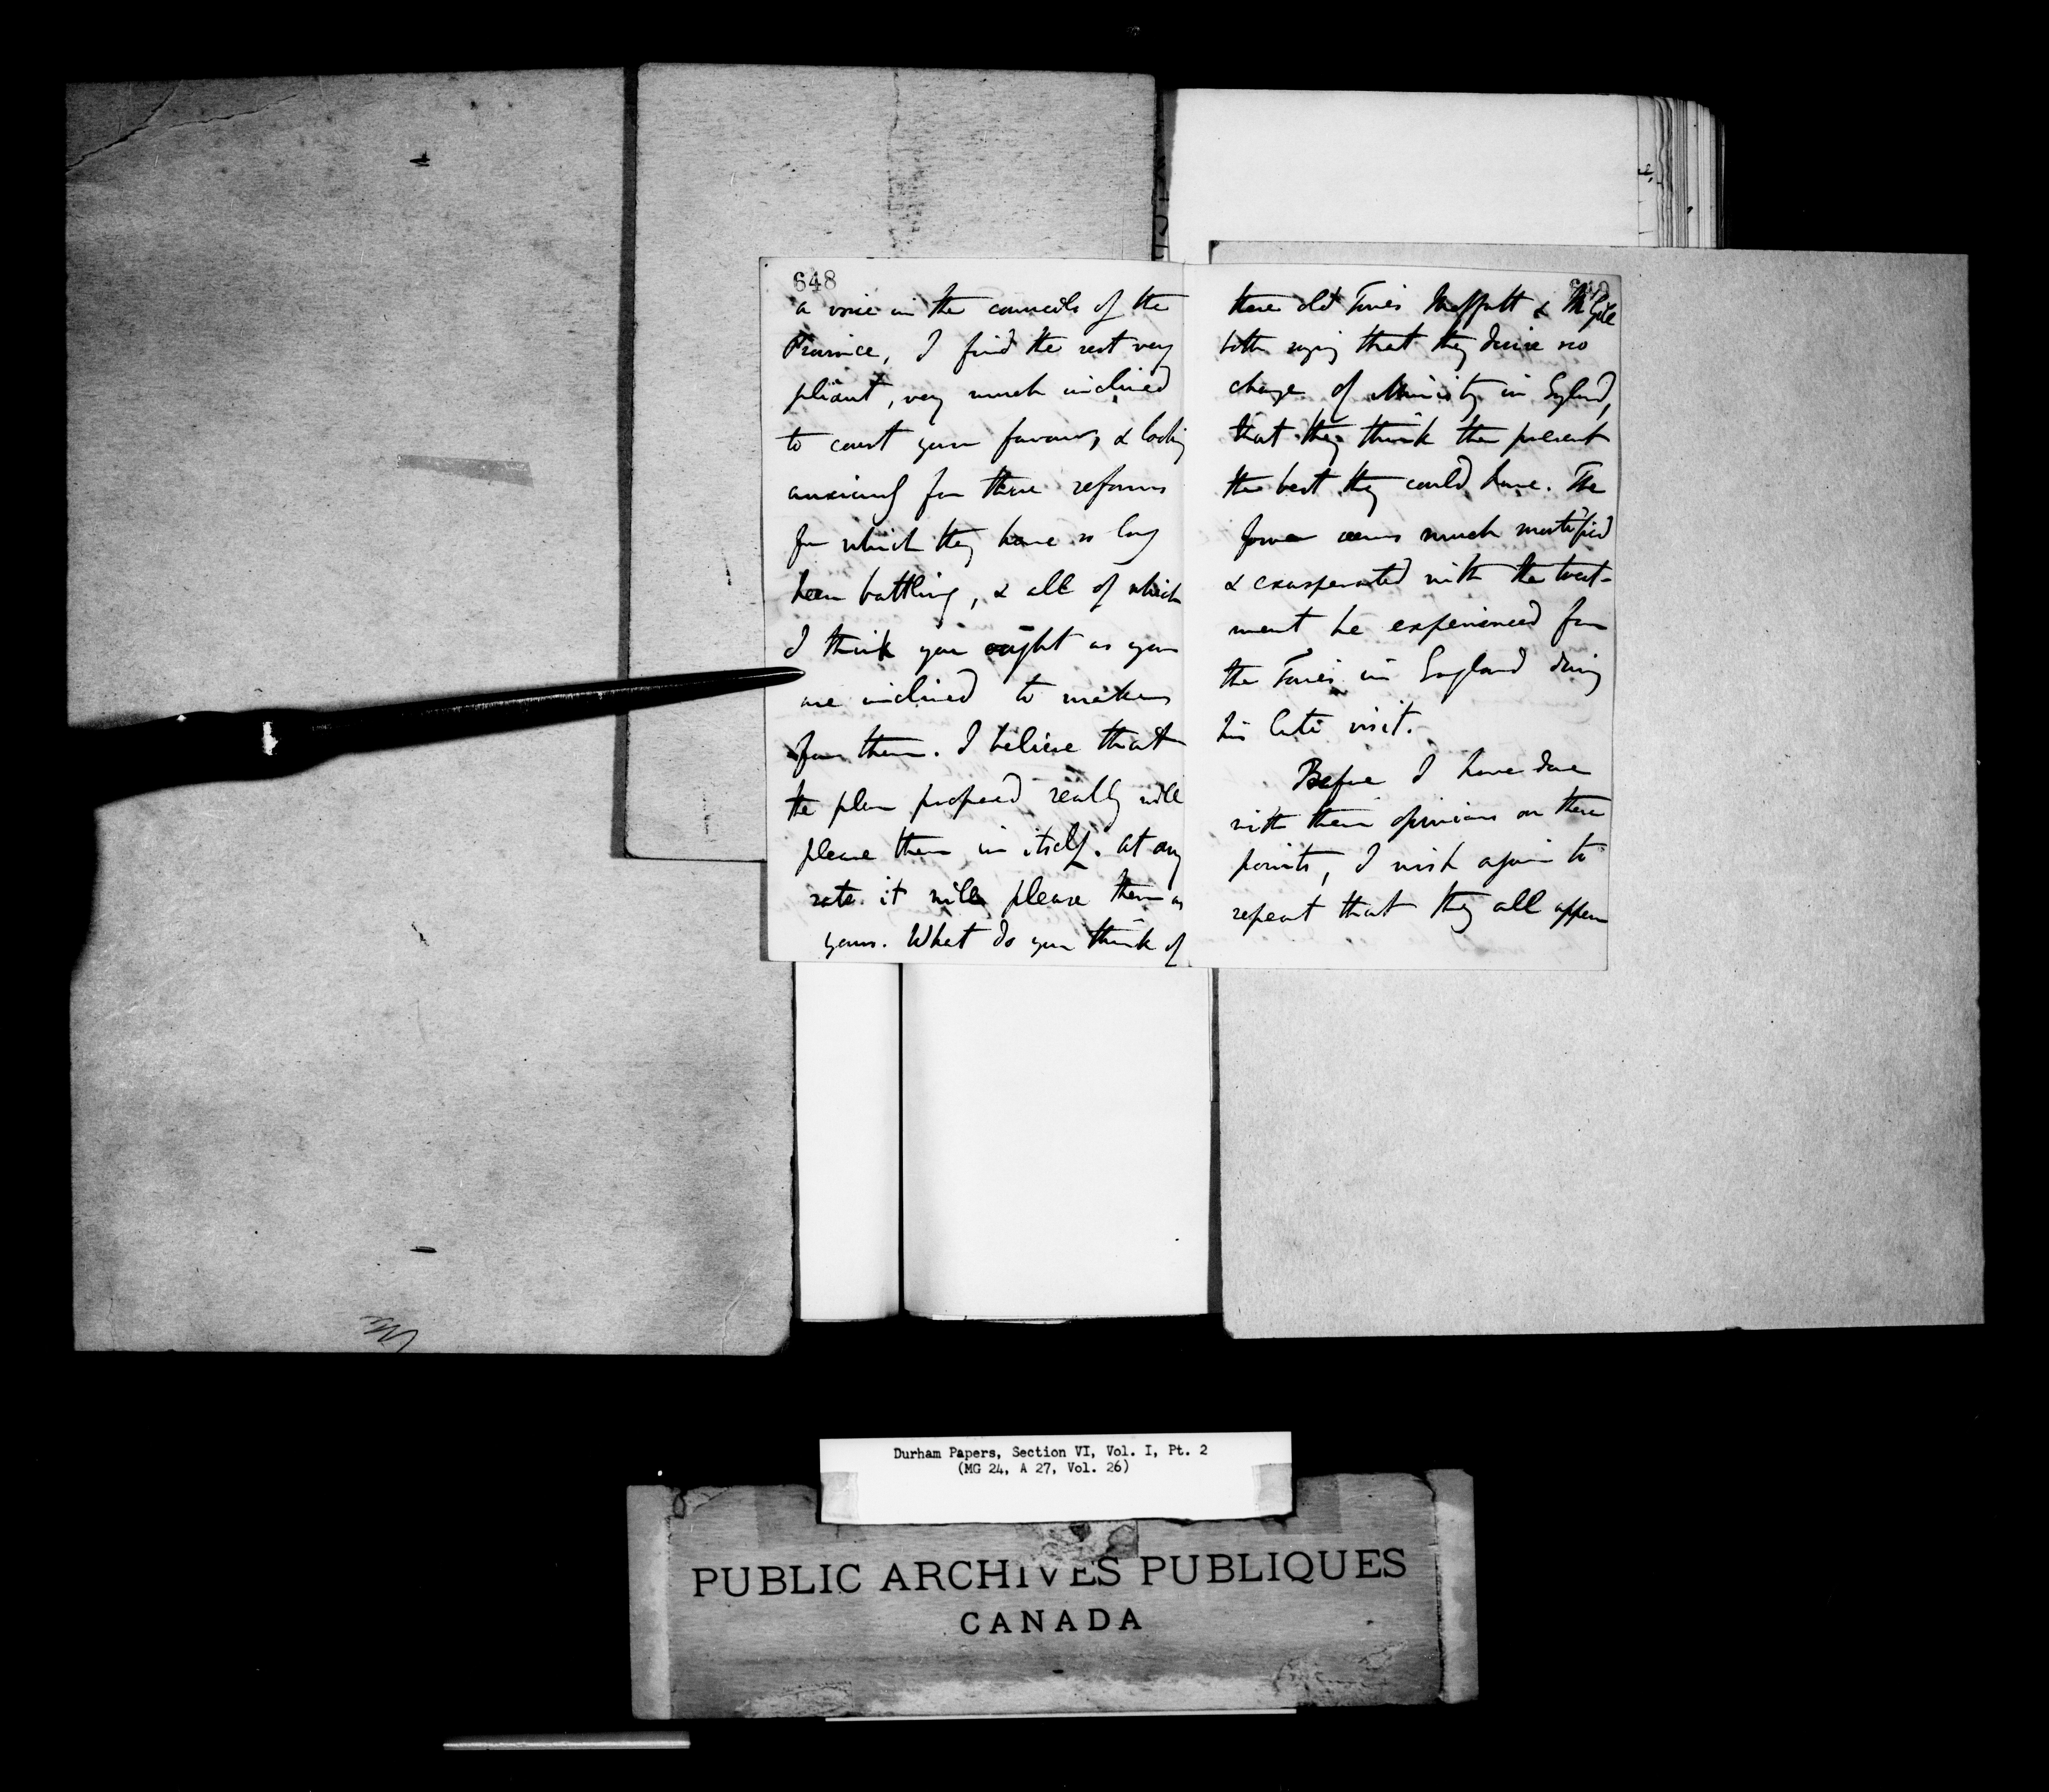 648
a voice in the councils of the
Province, I find the rest very
pliant, very much inclined
to court your favour, & looking
anxiously for those reforms
for which they have so long
been battling, & all of which
I think you ought as you
are inclined to make
for them. I believe that
the plan proposed really will
please them in itself. At any
rate it will please them as
yours. What do you think of
649
these old Tories Moffatt & McGill
both saying that they desire no
change of Ministry in England,
that they think the present
the best they could have. The
former seems much mortified
& exasperated with the treat-
ment he experienced from
the Tories in England during
his late visit.
Before I have done
with their opinions on these
points, I wish again to
repeat that they all appear
Durham Papers, Section VI, Vol. I, Pt. 2
(MG 24, A 27, Vol. 26)
PUBLIC ARCHIVES PUBLIQUES
CANADA